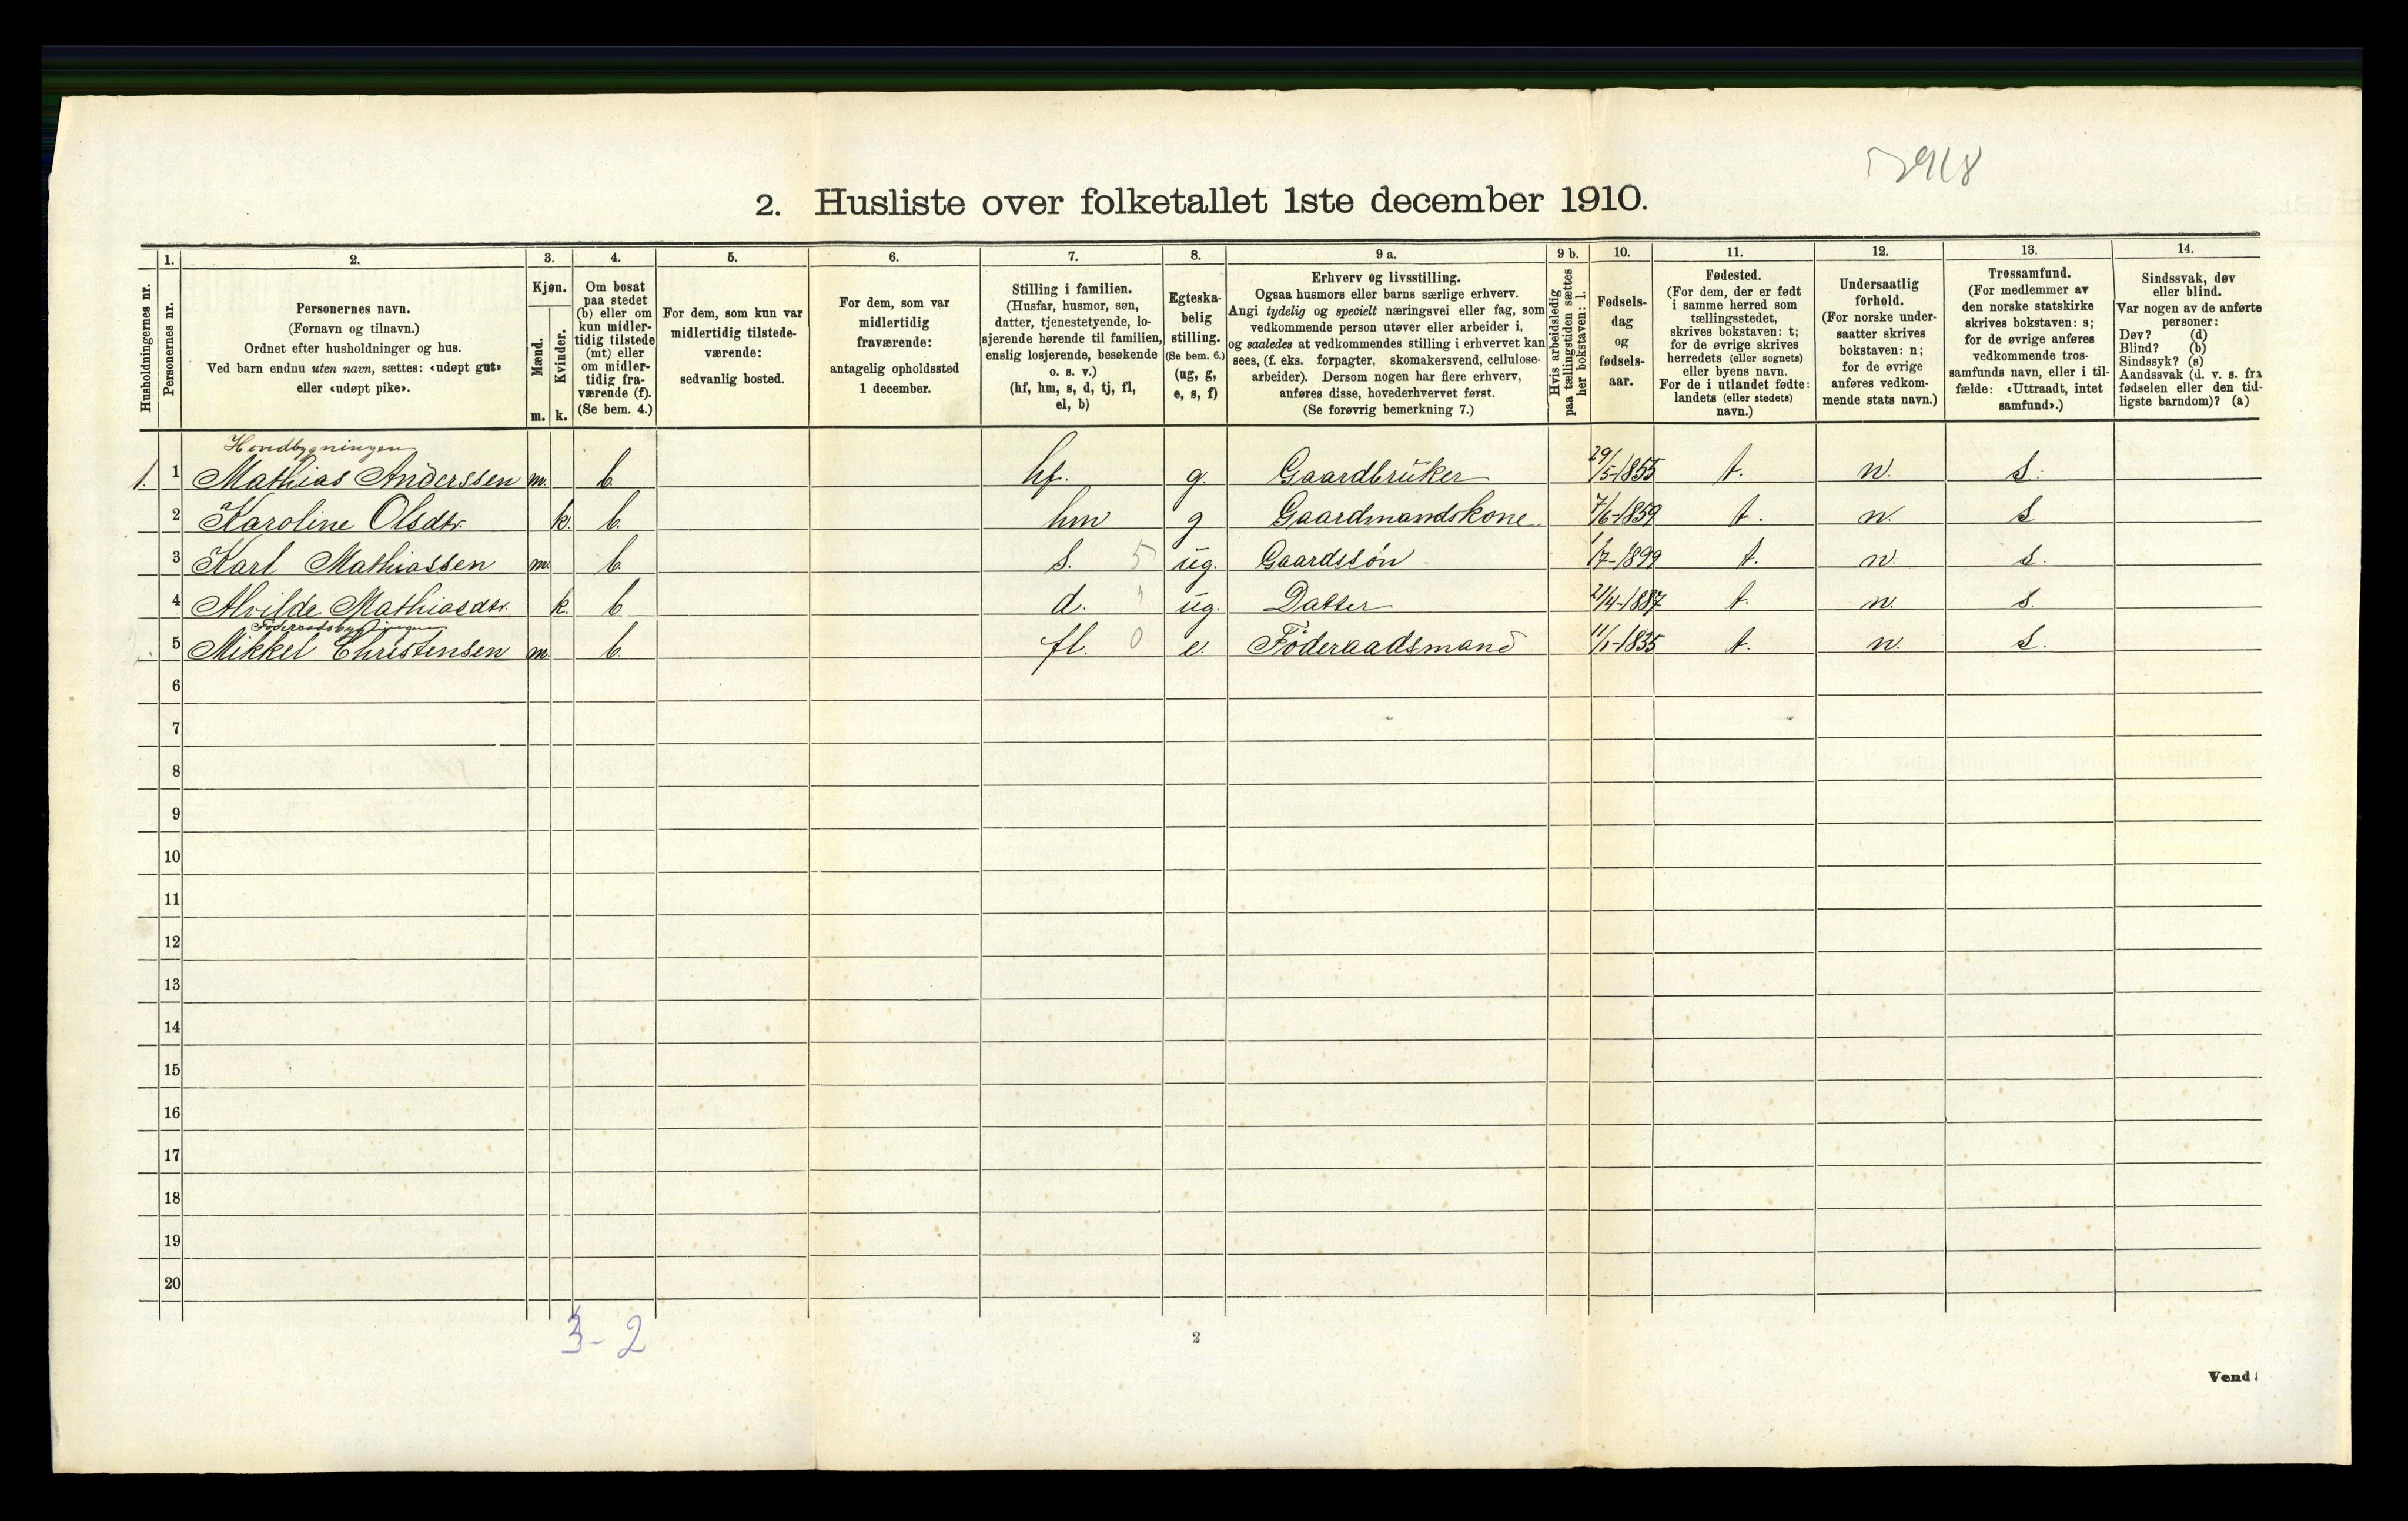 2. Husliste over folketallet 1ste december 1910.
1. 2. 3. 4. 5. 6. 7. 8. 9 a. 9 b. 10. 11. 12. 13. 14.
Husholdningernes nr.
Personernes nr.
Personernes navn.
(Fornavn og tilnavn.)
Ordnet efter husholdninger og hus.
Ved barn endnu uten navn, sættes: «udøpt gut»
eller «udøpt pike».
Kjøn.
Mænd.
m.
Kvinder.
k.
Om bosat
paa stedet
(b) eller om
kun midler-
tidig tilstede
(mt) eller
om midler-
tidig fra-
værende (f).
(Se bem. 4.)
For dem, som kun var
midlertidig tilstede-
værende:
sedvanlig bosted.
For dem, som var
midlertidig
fraværende:
antagelig opholdssted
1 december.
Stilling i familien.
(Husfar, husmor, søn,
datter, tjenestetyende, lo-
sjerende hørende til familien,
enslig losjerende, besøkende
o. s. v.)
(hf, hm, s, d, tj, fl,
el, b)
Egteska-
belig
stilling.
(Se bem. 6.)
(ug, g,
e, s, f)
Erhverv og livsstilling.
Ogsaa husmors eller barns særlige erhverv.
Angi tydelig og specielt næringsvei eller fag, som
vedkommende person utøver eller arbeider i,
og saaledes at vedkommendes stilling i erhvervet kan
sees, (f. eks. forpagter, skomakersvend, cellulose-
arbeider). Dersom nogen har flere erhverv,
anføres disse, hovederhvervet først.
(Se forøvrig bemerkning 7.)
Hvis arbeidsledig
paa tællingstiden sættes
her bokstaven: l.
Fødsels-
dag
og
fødsels-
aar.
Fødested.
(For dem, der er født
i samme herred som
tællingsstedet,
skrives bokstaven: t;
for de øvrige skrives
herredets (eller sognets)
eller byens navn.
For de i utlandet fødte:
landets (eller stedets)
navn.)
Undersaatlig
forhold.
(For norske under-
saatter skrives
bokstaven: n;
for de øvrige
anføres vedkom-
mende stats navn.)
Trossamfund.
(For medlemmer av
den norske statskirke
skrives bokstaven: s;
for de øvrige anføres
vedkommende tros-
samfunds navn, eller i til-
fælde: «Uttraadt, intet
samfund».)
Sindssvak, døv
eller blind.
Var nogen av de anførte
personer:
Døv? (d)
Blind? (b)
Sindssyk? (s)
Aandssvak (d. v. s. fra
fødselen eller den tid-
ligste barndom)? (a)
Hovedbygningen
1. 1 Mathias Anderssen m. b. hf. g. Gaardbruker 29/5-1855 t. n. s.
2 Karoline Olsdtr. k. b. hm g Gaardmandskone 7/6-1859 t. n. s
3 Karl Mathiassen m. b. s. 5 ug. Gaardssøn 1/7-1899 t. n. s.
4 Alvilde Mathiasdtr. k. b d. ug. Datter 21/4-1887 t. n. s.
Føderaadsbygningen
5 Mikkel Christensen m. b. fl. 0 e. Føderaadsmand 11/1-1835 t. n. s.
6
7
8
9
10
11
12
13
14
15
16
17
18
19
20
3-2
2
Vend!